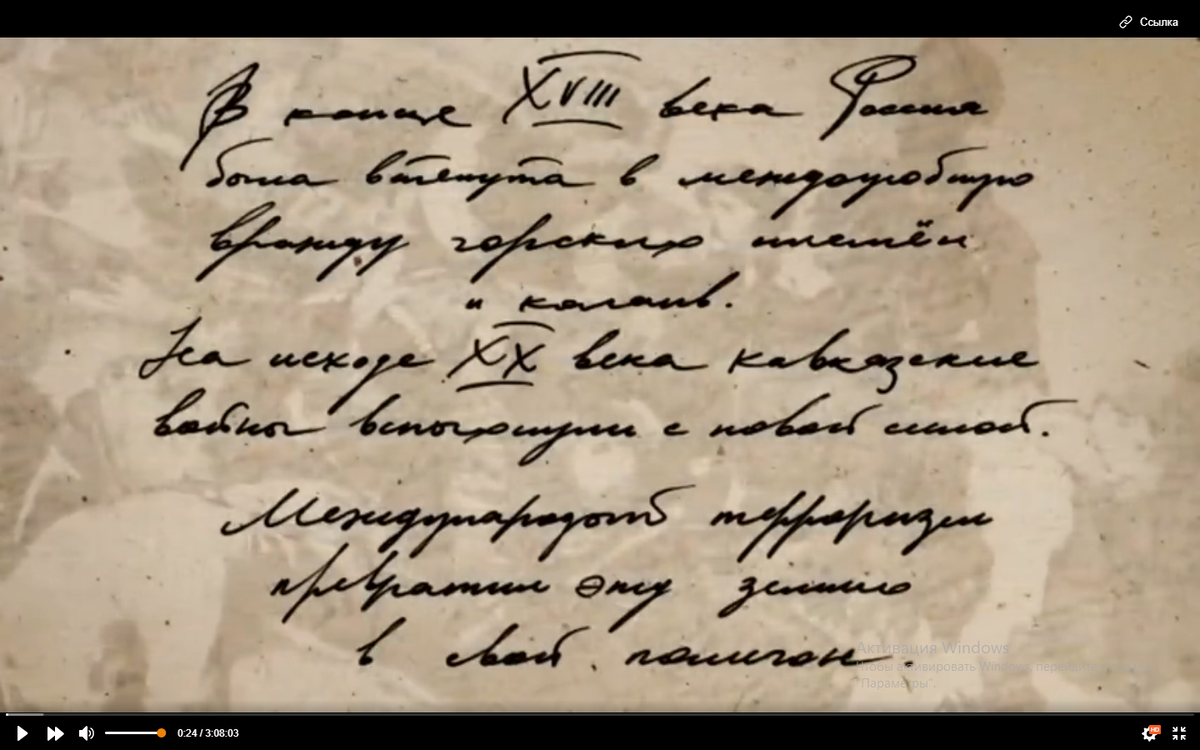 Ссылка
В конце XVIII века Россия
была втянута в междоусобную
вражду горских племён
и кланов.
На исходе XX века кавказские
войны вспыхнули с новой силой.
Международный терроризм
превратил эту землю
в свой полигон.
Активация Windows
Чтобы активировать Windows, перейдите
"Параметры".
0:24 / 3:08:03
HD